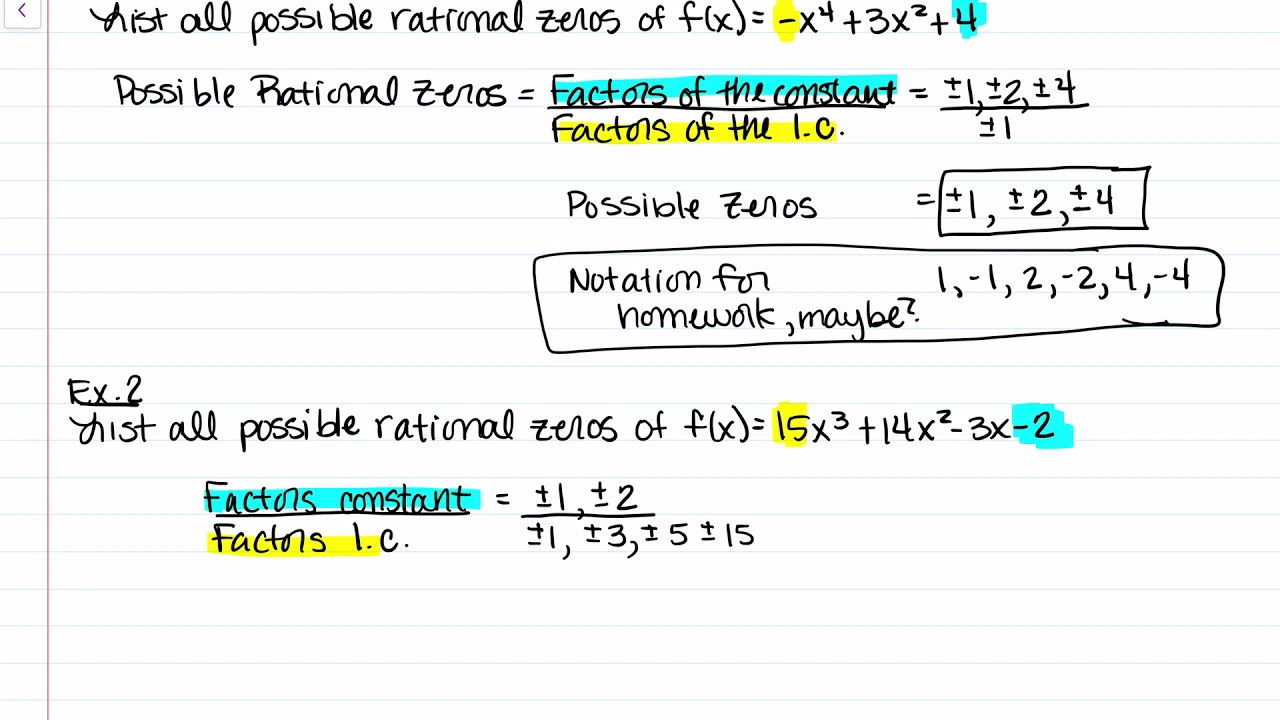 List all possible rational zeros of f(x)= -x⁴+3x²+4
Possible Rational Zeros = Factors of the constant / Factors of the l.c. = ±1, ±2, ±4 / ±1
Possible Zeros = ±1, ±2, ±4
Notation for 1, -1, 2, -2, 4, -4
homework, maybe?
Ex. 2
List all possible rational zeros of f(x)= 15x³+14x²-3x-2
Factors constant / Factors l.c. = ±1, ±2 / ±1, ±3, ±5 ±15